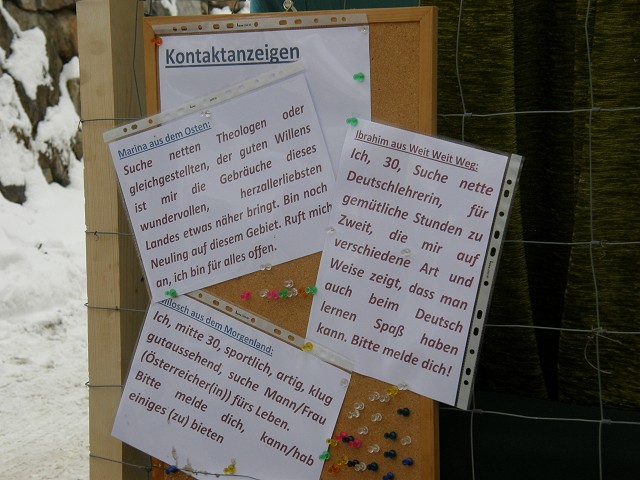 Kontaktanzeigen
Marina aus dem Osten:
Suche netten Theologen oder
gleichgestellten, der guten Willens
ist mir die Gebräuche dieses
wundervollen, herzallerliebsten
Landes etwas näher bringt. Bin noch
Neuling auf diesem Gebiet. Ruft mich
an, ich bin für alles offen.
Ibrahim aus Weit Weit Weg:
Ich, 30, Suche nette
Deutschlehrerin, für
gemütliche Stunden zu
Zweit, die mir auf
verschiedene Art und
Weise zeigt, dass man
auch beim Deutsch
lernen Spaß haben
kann. Bitte melde dich!
aus dem Morgenland:
Ich, mitte 30, sportlich, artig, klug
gutaussehend, suche Mann/Frau
(Österreicher(in)) fürs Leben.
Bitte melde dich, kann/hab
einiges (zu) bieten